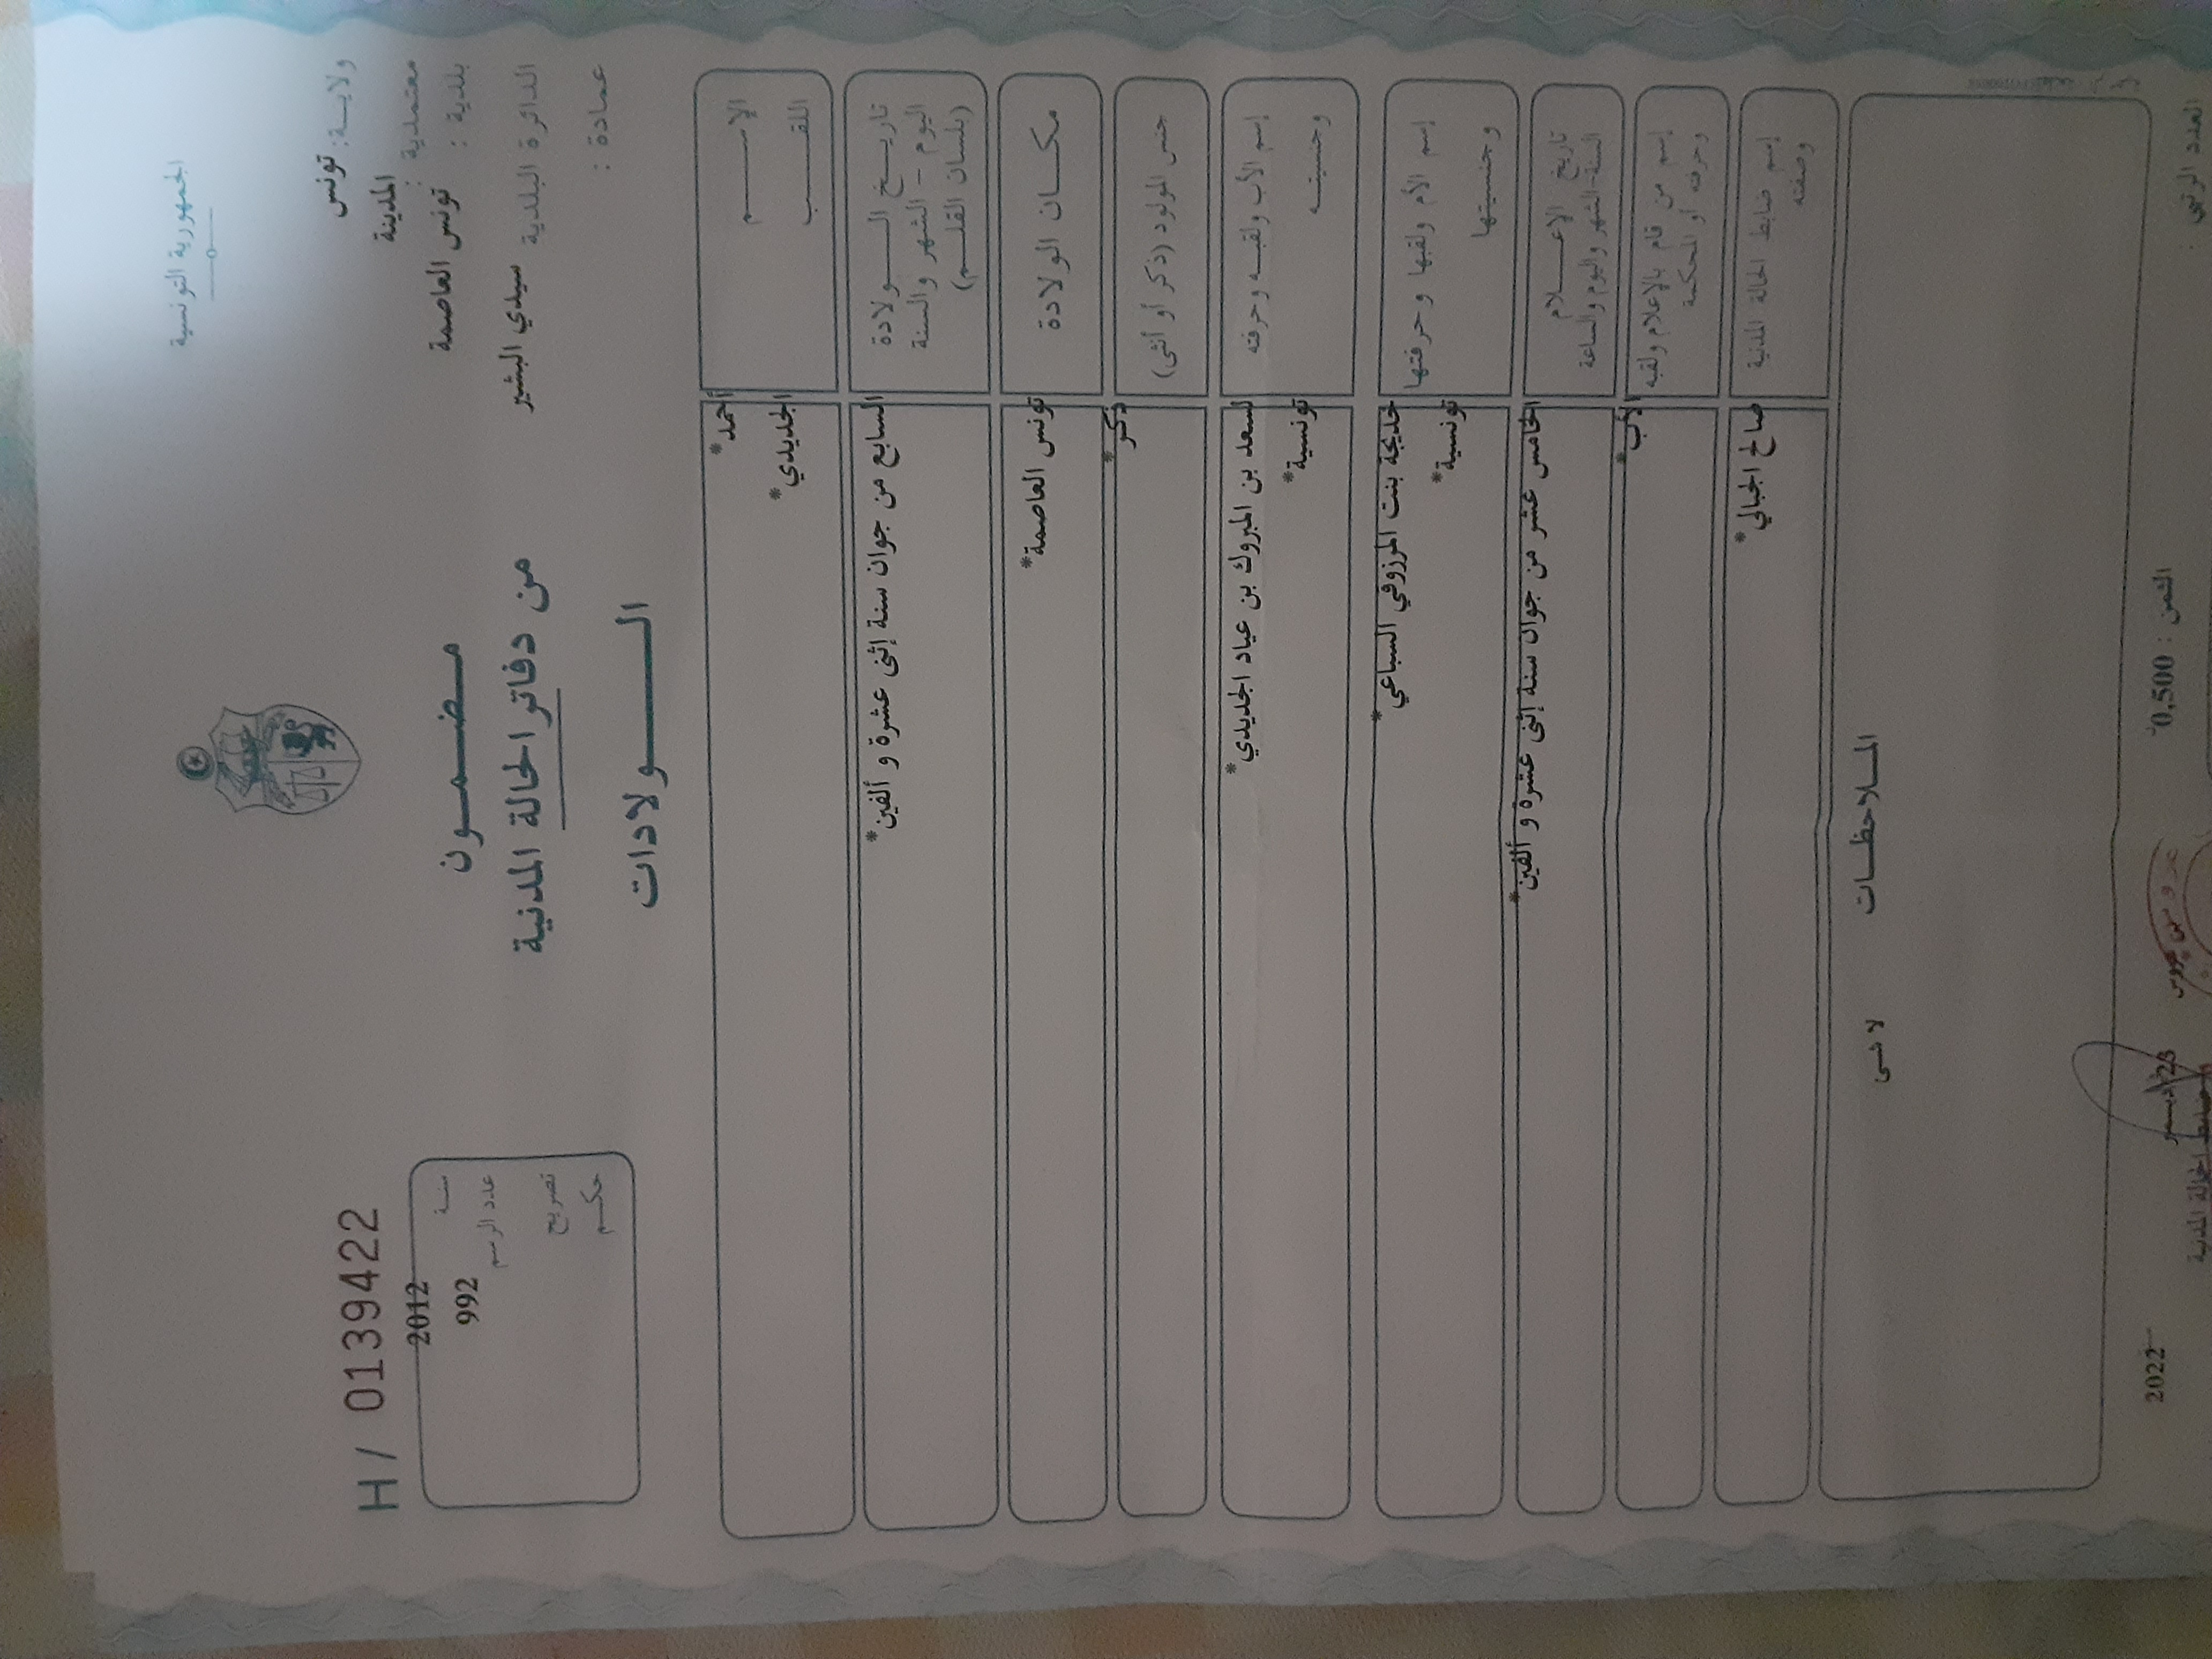 الجمهورية التونسية
ولاية: تونس
معتمدية : المدينة
بلدية : تونس العاصمة
الدائرة البلدية سيدي البشير
عمادة :
مضمون
من دفاتر الحالة المدنية
الولادات
H/ 0139422
سنة 2012
عدد الرسم 992
تصريح
حكم
الإسم أحمد*
اللقب الجديدي*
تاريخ الولادة
اليوم – الشهر والسنة
(بلسان القلم)
السابع من جوان سنة إثنى عشرة و ألفين*
مكان الولادة تونس العاصمة*
جنس المولود (ذكر أو أنثى) ذكر*
إسم الأب ولقبه وحرفته لسعد بن المبروك بن عياد الجديدي*
وجنسيته تونسية*
إسم الأم ولقبها وحرفتها خديجة بنت المرزوقي السباعي*
وجنسيتها تونسية*
تاريخ الإعلام
السنة-الشهر واليوم والساعة
الخامس عشر من جوان سنة إثنى عشرة و ألفين*
إسم من قام بالإعلام ولقبه
وحرفته أو المحكمة
الأب*
إسم ضابط الحالة المدنية صالح الجبالي*
وصفته
الملاحظات
لا شى
العدد الرتبي :
الثمن : 0,500
23 ديسمبر 2022
ضابط الحالة المدنية